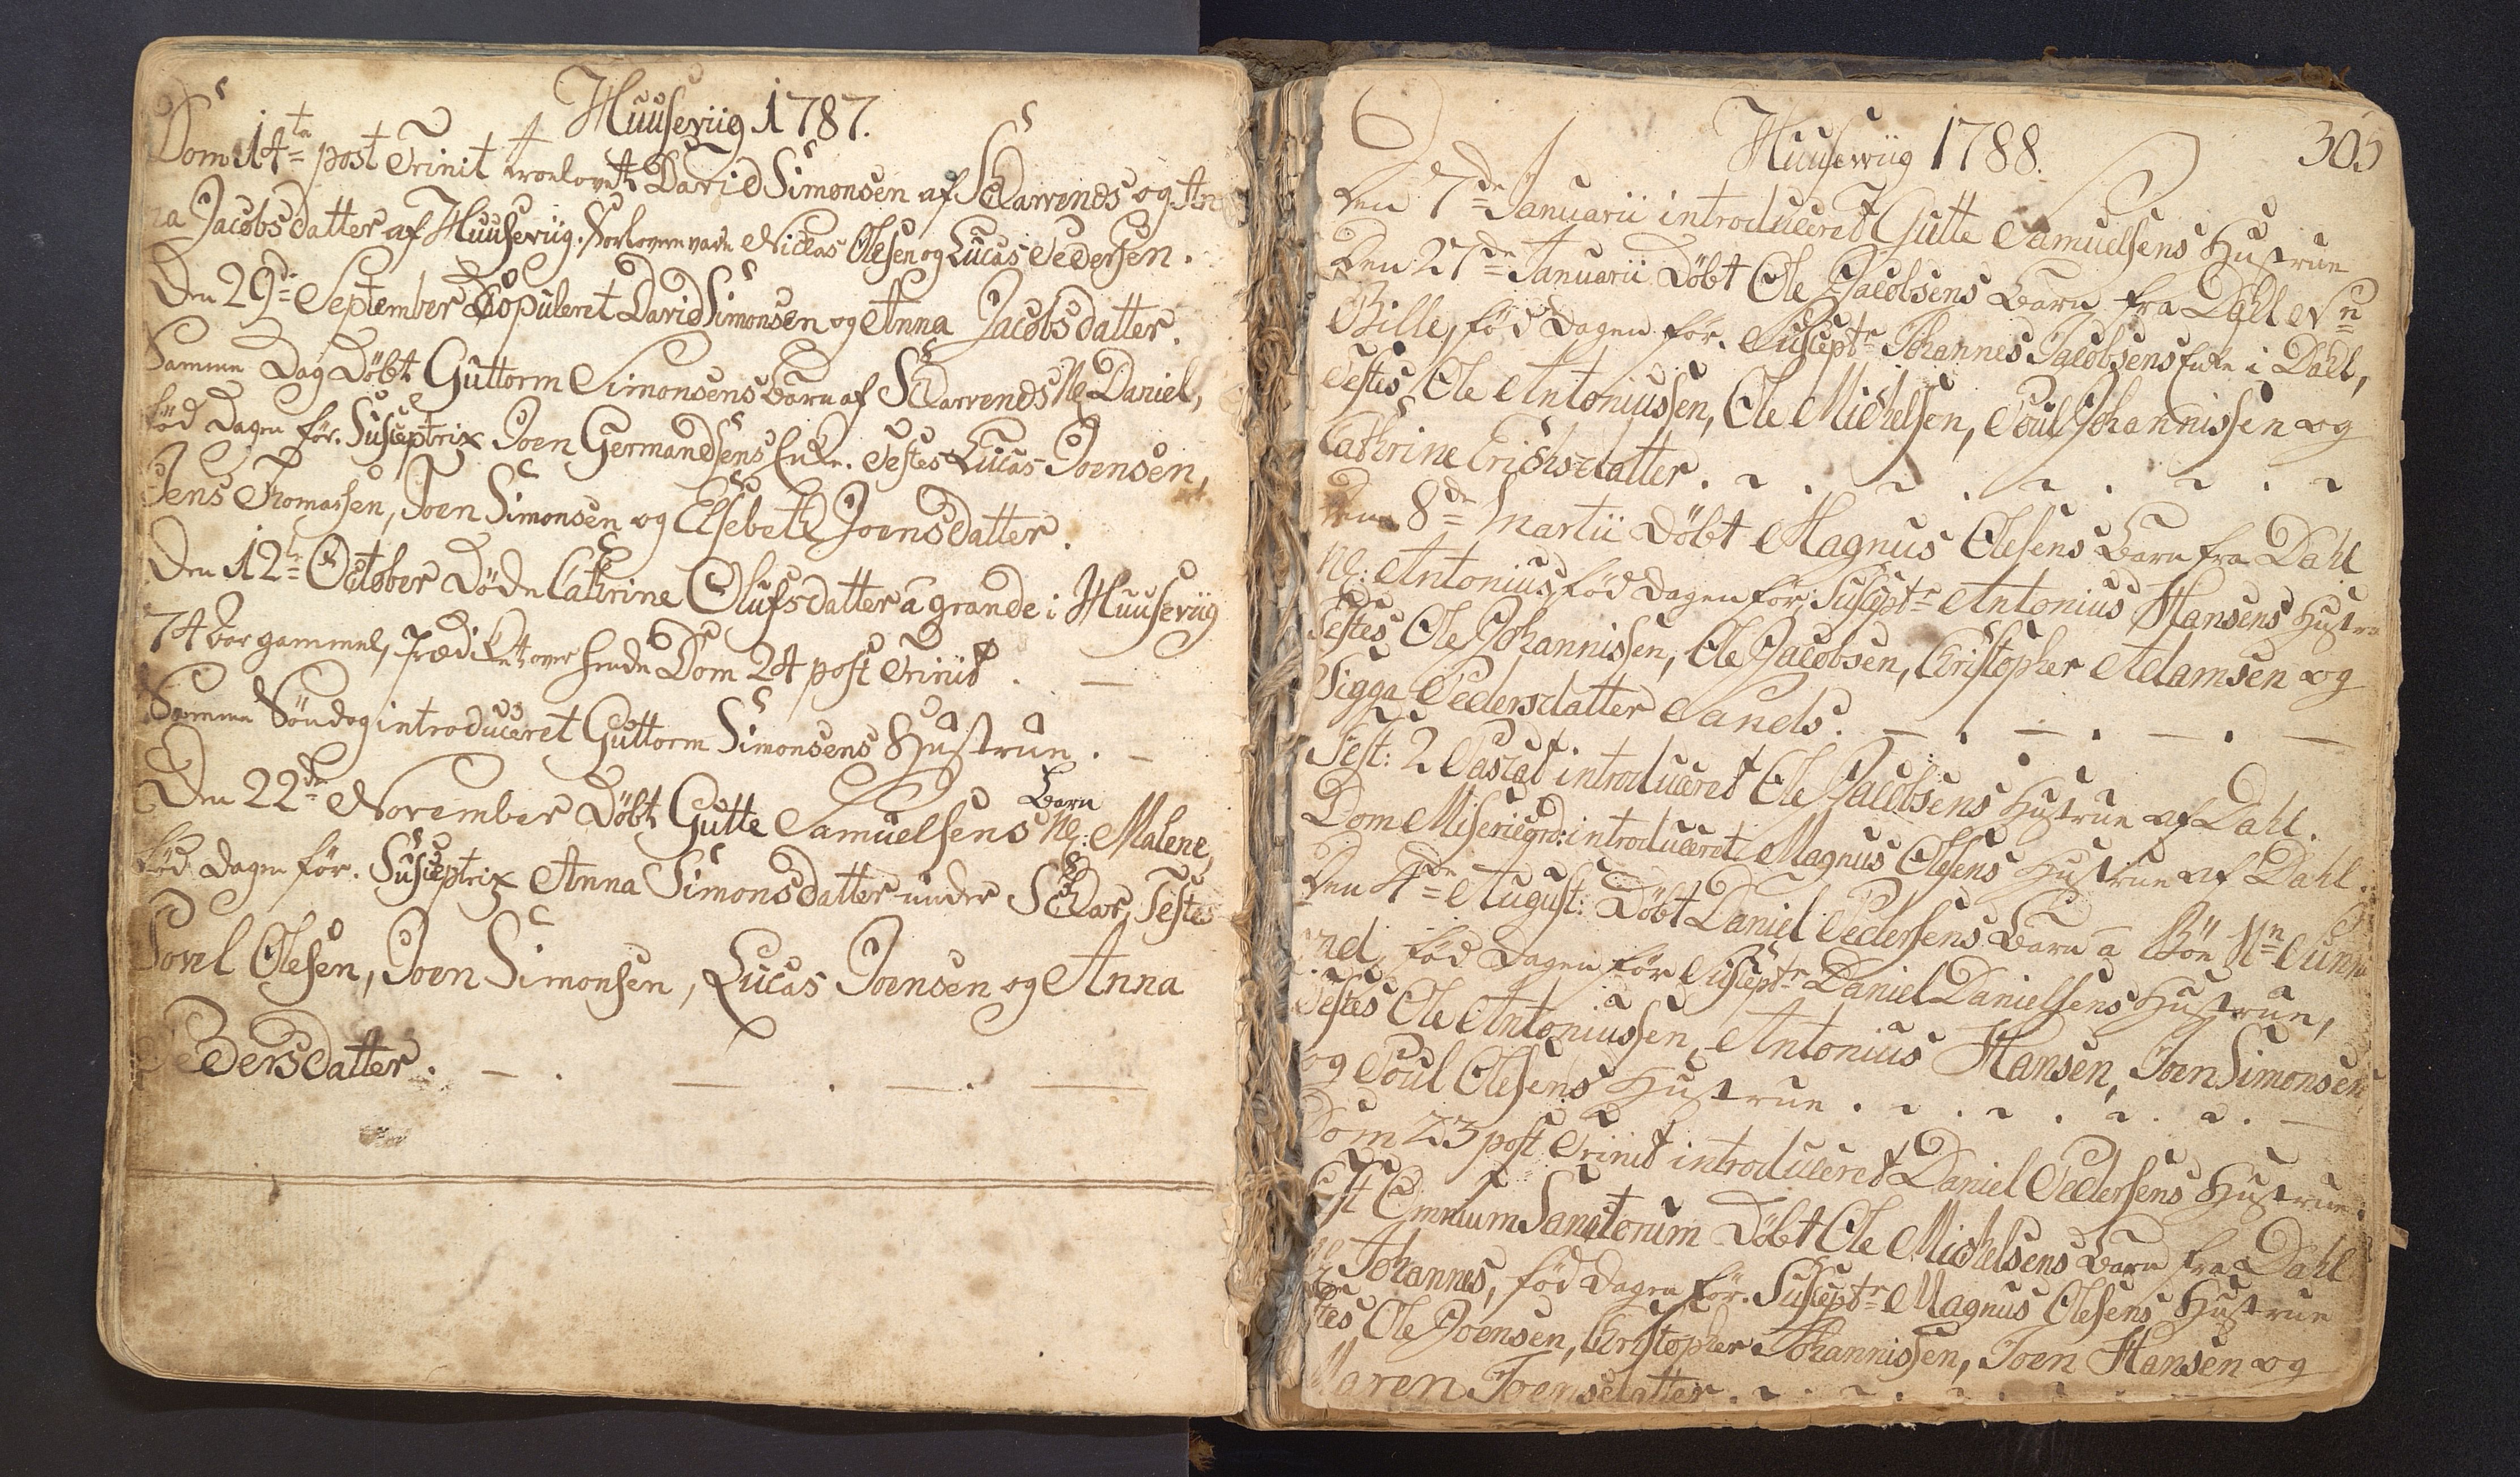 Huuseviig 1787.
Dom 14ta post Trinit trolovet David Simonsen af Skarrends og An
na Jacobsdatter af Huuseviig. Forlovere vare Niclas Olesen og Lucas Pedersen.
Den 29de September Copuleret David Simonsen og Anna Jacobsdatter.
Samme Dag Döbt Guttorm Simonsens Barn af Skarrends Nl Daniel,
föd dagen för. Susceptrix Joen Germandsens Enke. Testes Lucas Joensen,
Jens Thomassen, Joen Simonsen og Elsebeth Joensdatter.
Den 12te October Döde Cathrine Olufsdatter a grande i Huuseviig
74 Aar gammel, Prædiket over hende Dom 24 post Trinit.
Samme Söndag introduceret Guttorm Simonsens Hustrue.
Den 22de November Döbt Gutte Samuelsens Barn Nl: Malene,
föd dagen för. Susceptrix Anna Simonsdatter under Skar, Testes
Povel Olesen, Joen Simonsen, Lucas Joensen og Anna
Pedersdatter.
Huuseviig 1788.
305
Den 7de Januarii introduceret Gutte Samuelsens Hustrue
Den 27de Januarii Döbt Ole Jacobsens Barn fra Dahl Nn
Bille, föd dagen för. Susceptr Johannes Jacobsens Enke i Dahl,
Testes Ole Antoniussen, Ole Michelsen, Poul Johannissen og
Cathrine Erichsdatter.
Den 8de Martii Döbt Magnus Olesens Barn fra Dahl
Nl: Antonius, föd dagen för, Susceptr Antonius Hansens Hustru
Testes Ole Johannissen, Ole Jacobsen, Christopher Adamsen og
Sigga Pedersdatter Sands.
Fest: 2 Pascat introduceret Ole Jacobsens Hustrue af Dahl.
Dom Misericord: introduceret Magnus Olesens Hustrue af Dahl.
Den 4de August: Döbt Daniel Pedersens Barn a Böe Nn Sunne
föd dagen för Susceptr Daniel Danielsens Hustrue,
Testes Ole Antoniussen, Antonius Hansen, Joen Simonsen
og Poul Olesens Hustrue.
Dom 23 post Trinit introduceret Daniel Pedersens Hustrue.
Fest Omnium Sanctorum Döbt Ole Michelsens Barn fra Dahl
Nl Johannes, föd dagen för. Susceptr Magnus Olesens Hustrue
Testes Ole Joensen, Christopher Johannissen, Joen Hansen og
Maren Joensdatter.